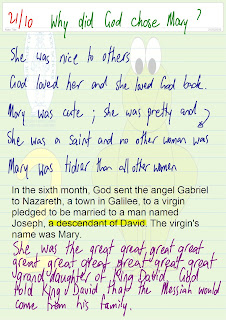 21/10 Why did God chose Mary?
She was nice to others
God loved her and she loved God back.
Mary was cute; she was pretty and
She was a saint and no other woman was
Mary was tidier than all other women
In the sixth month, God sent the angel Gabriel
to Nazareth, a town in Galilee, to a virgin
pledged to be married to a man named
Joseph, a descendant of David. The virgin's
name was Mary.
She was the great great, great great
great, great great great, great great
grand daughter of King David. God
told King David that the Messiah would
come from his family.